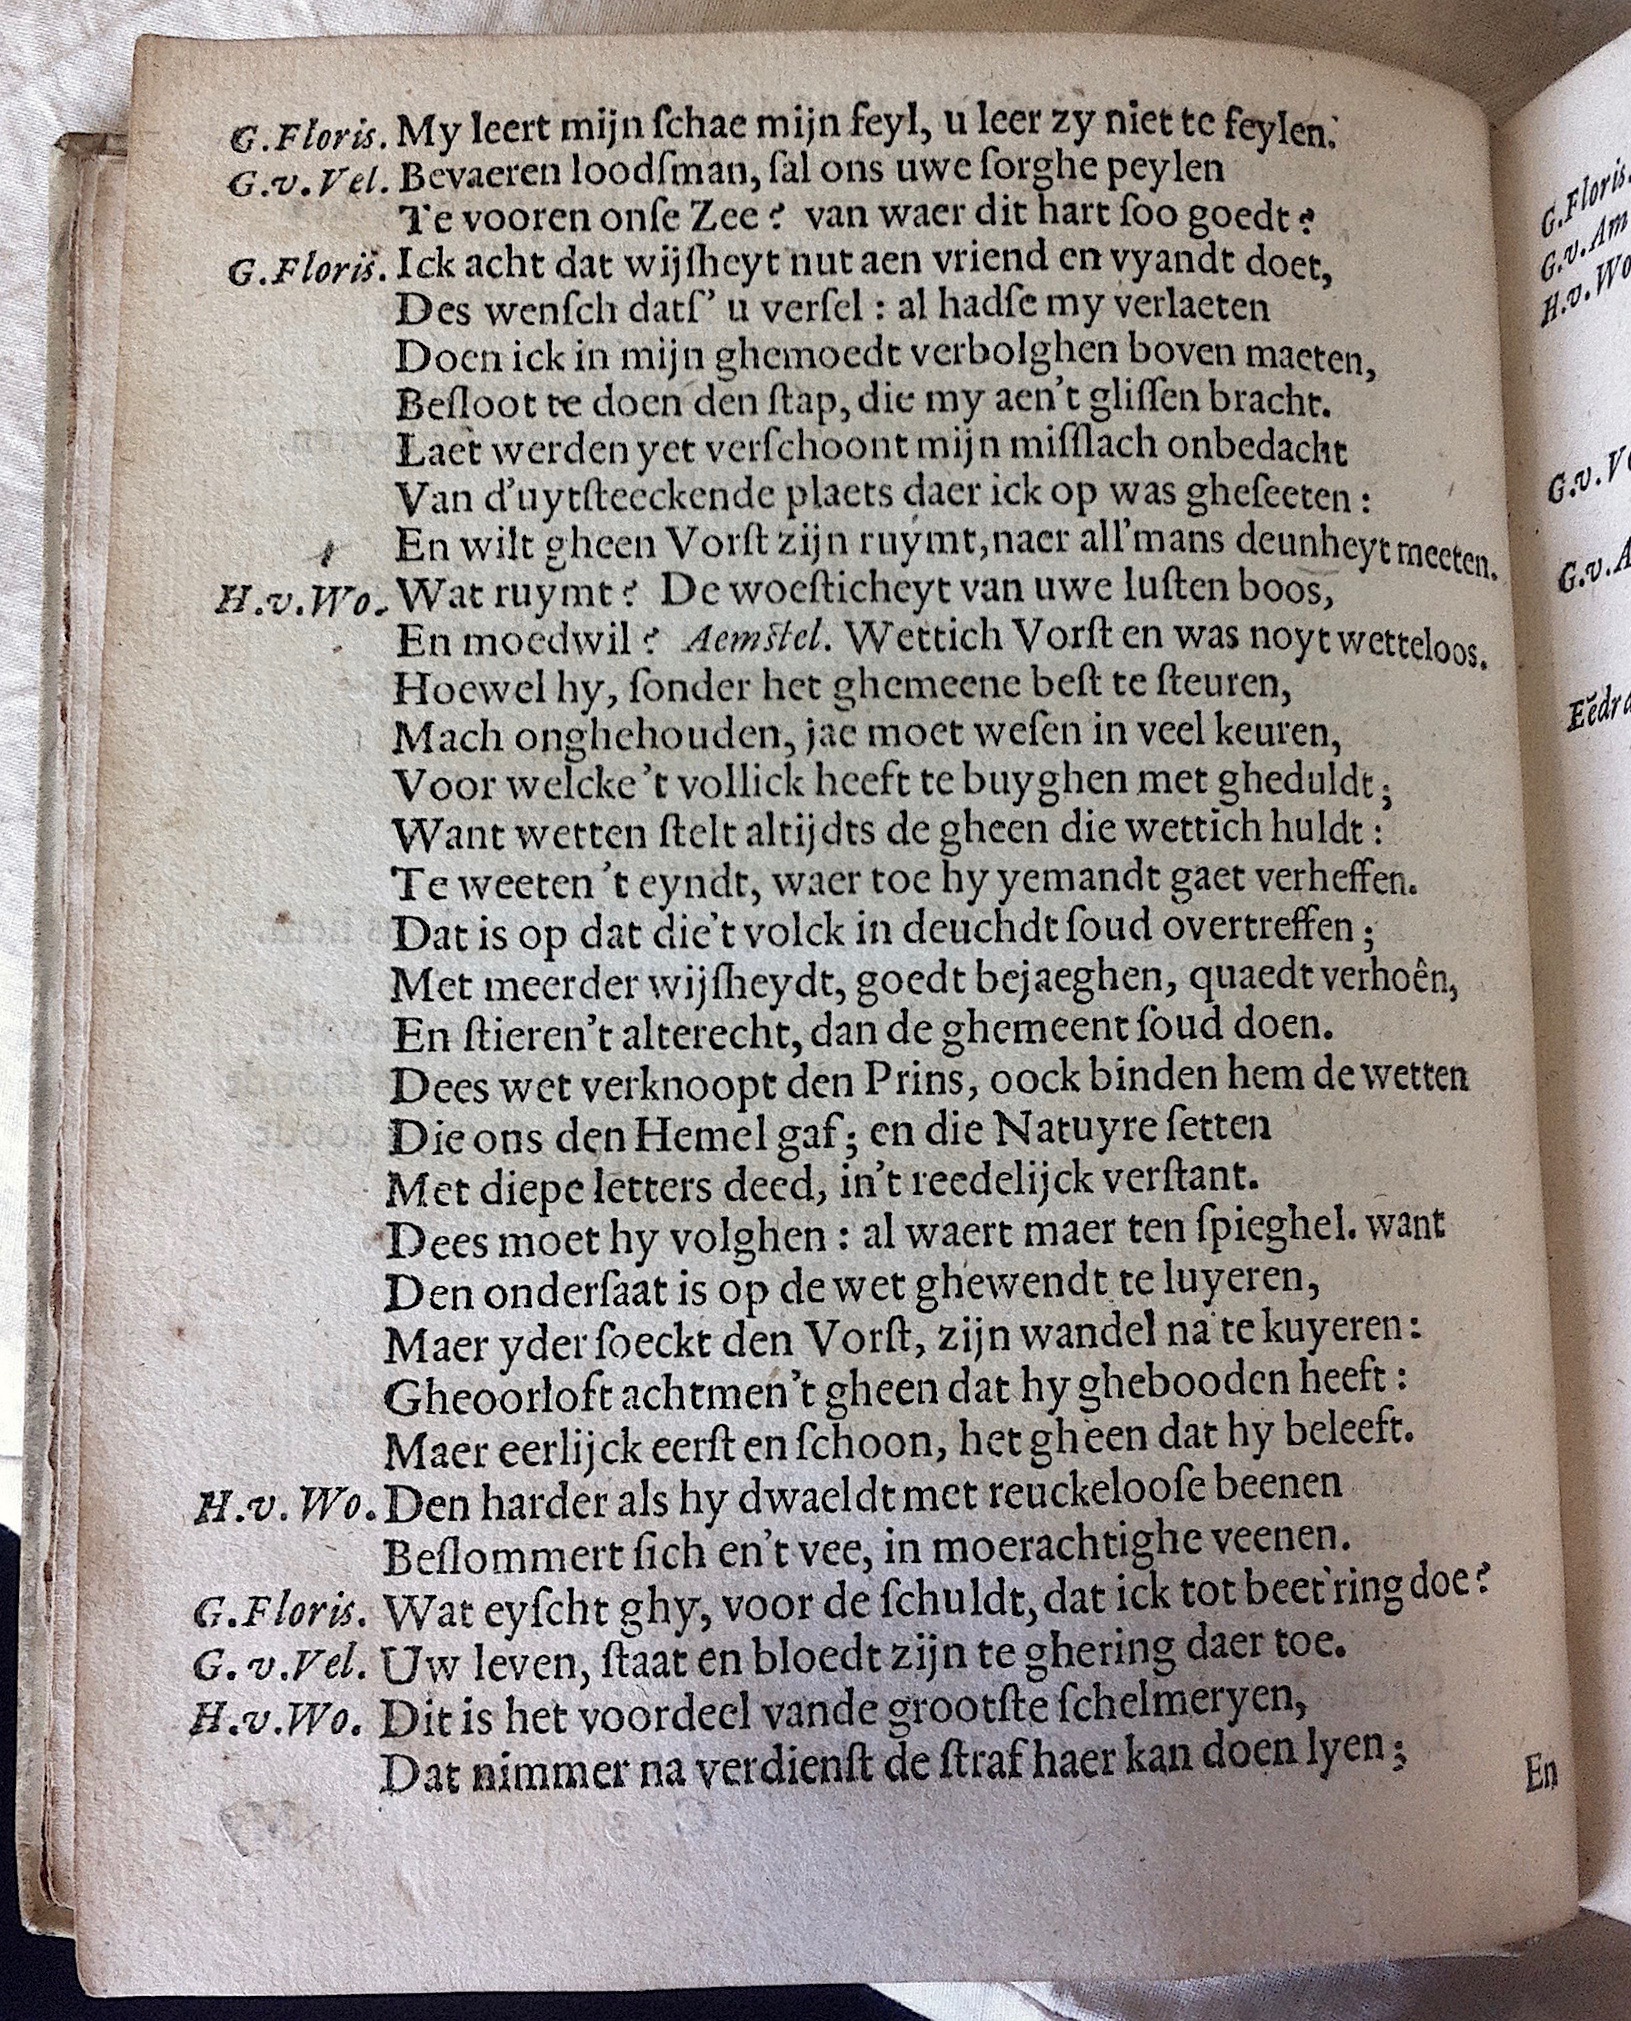 G.Floris. My leert mijn ſchae mijn feyl, u leer zy niet te feylen.
G.v.Vel. Bevaeren loodſman, ſal ons uwe ſorghe peylen
Te vooren onſe Zee? van waer dit hart ſoo goedt?
G.Floris. Ick acht dat wijſheyt nut aen vriend en vyandt doet,
Des wenſch datſ' u verſel : al hadſe my verlaeten
Doen ick in mijn ghemoedt verbolghen boven maeten,
Beſloot te doen den ſtap, die my aen't gliſſen bracht.
Laet werden yet verſchoont mijn miſſlach onbedacht
Van d'uytſteeckende plaets daer ick op was gheſeeten :
En wilt gheen Vorſt zijn ruymt, naer all'mans deunheyt meeten.
H.v.Wo. Wat ruymt? De woeſticheyt van uwe luſten boos,
En moedwil? Aemſtel. Wettich Vorſt en was noyt wetteloos.
Hoewel hy, ſonder het ghemeene beſt te ſteuren,
Mach onghehouden, jae moet weſen in veel keuren,
Voor welcke 't vollick heeft te buyghen met gheduldt;
Want wetten ſtelt altijdts de gheen die wettich huldt :
Te weeten 't eyndt, waer toe hy yemandt gaet verheffen.
Dat is op dat die't volck in deuchdt ſoud overtreffen;
Met meerder wijſheydt, goedt bejaeghen, quaedt verhoên,
En ſtieren't alterecht, dan de ghemeent ſoud doen.
Dees wet verknoopt den Prins, oock binden hem de wetten
Die ons den Hemel gaf; en die Natuyre ſetten
Met diepe letters deed, in't reedelijck verſtant.
Dees moet hy volghen : al waert maer ten ſpieghel. want
Den onderſaat is op de wet ghewendt te luyeren,
Maer yder ſoeckt den Vorſt, zijn wandel na te kuyeren :
Gheoorloft achtmen't gheen dat hy ghebooden heeft :
Maer eerlijck eerſt en ſchoon, het gheen dat hy beleeft.
H.v.Wo. Den harder als hy dwaeldt met reuckelooſe beenen
Beſlommert ſich en't vee, in moerachtighe veenen.
G.Floris. Wat eyſcht ghy, voor de ſchuldt, dat ick tot beet'ring doe?
G.v.Vel. Uw leven, ſtaat en bloedt zijn te ghering daer toe.
H.v.Wo. Dit is het voordeel vande grootſte ſchelmeryen,
Dat nimmer na verdienſt de ſtraf haer kan doen lyen;
En
G.Floris.
G.v.Am
H.v.Wo
G.v.Ve
G.v.A